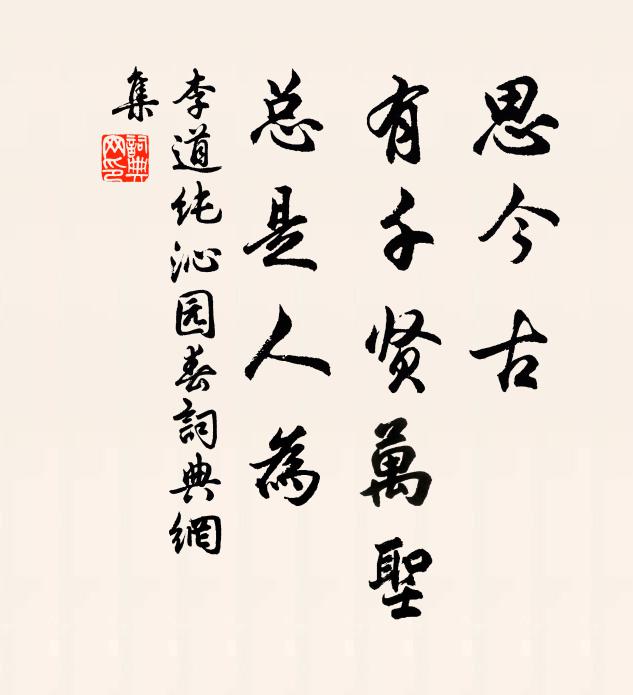 思今古
有千贤萬聖
总是人為
李道纯沁园春詞典網
集
詞典
网印